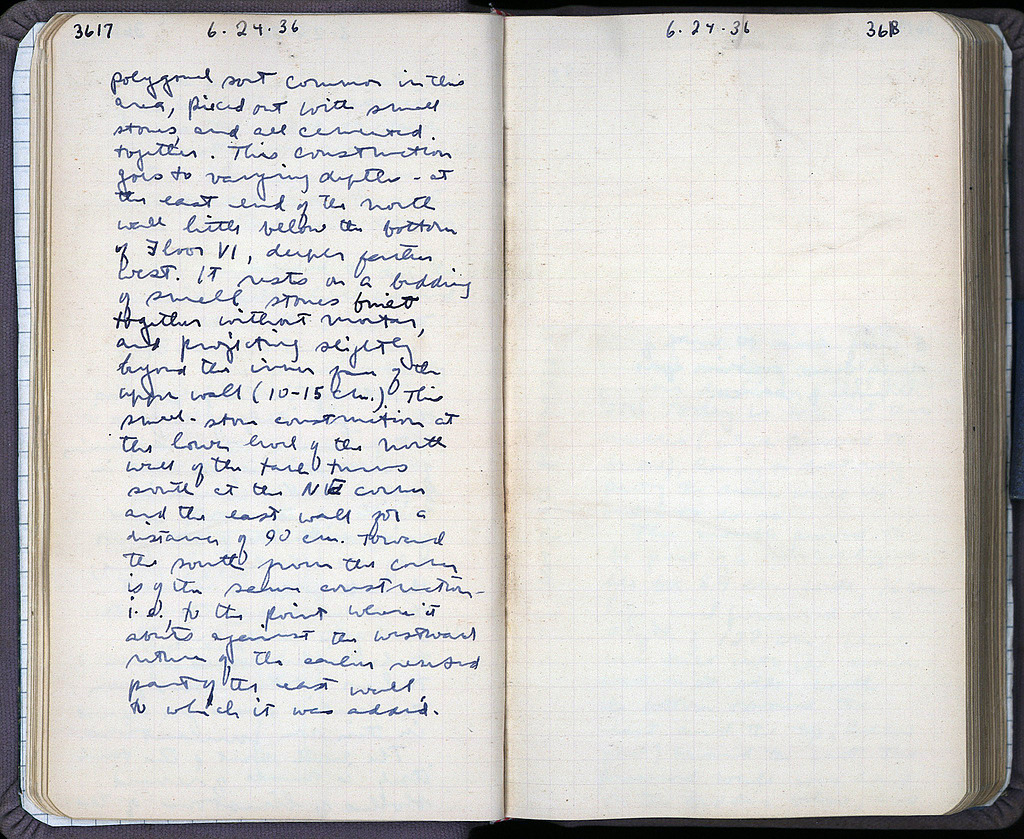 3617 6.24.36
polygonal sort common in this
area, pieced out with small
stones, and all cemented
together. This construction
goes to varying depths - at
the east end of the north
wall little below the bottom
of Floor VI, deeper farther
west. It rests on a bedding
of small stones built
together without mortar,
and projecting slightly
beyond the inner face of the
upper wall (10-15 cm.) This
small-stone construction at
the lower level of the north
wall of the tank turns
south at the NE corner
and the east wall for a
distance of 90 cm. toward
the south from the corner
is of the same construction-
i.e., to the point where it
abuts against the westward
return of the earlier reused
part of the east wall,
to which it was added.
6.24.36 3618